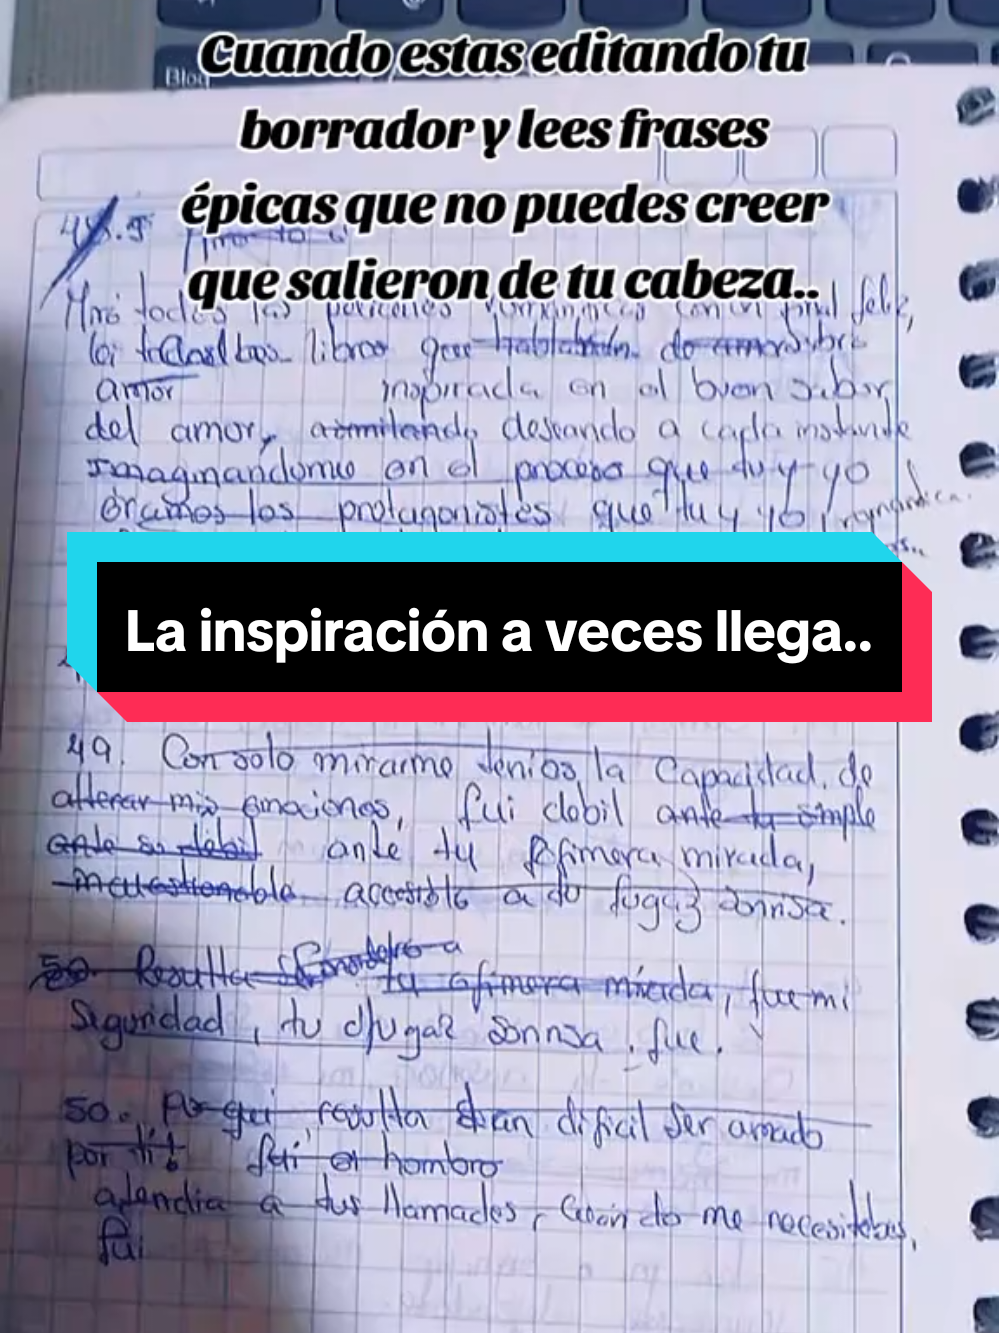 Bloq
Cuando estas editando tu
borrador y lees frases
épicas que no puedes creer
que salieron de tu cabeza..
Miré todas las películas románticas con un final feliz,
leí todos los libros que hablaban de amor sobre
amor inspirada en el buen sabor
del amor, deseando a cada instante
imaginandome en el proceso que tu y yo
éramos los protagonistas que tu y yo romántica.
La inspiración a veces llega..
49. Con solo mirarme tenías la capacidad de
alterar mis emociones, fui debil ante tu simple
ante tu primera mirada,
incuestionable accesible a tu fugaz sonrisa.
50. Resulta tu primera mirada, fue mi
Seguridad, tu fugaz sonrisa, fue.
50. Por qué resulta tan dificil ser amado
por ti! fui el hombro
atendia a tus llamados, cuando me necesitabas,
fui